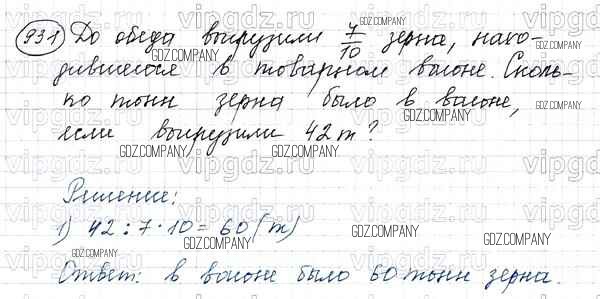 931 До обеда выгрузили 7/10 зерна, нахо-
дившегося в товарном вагоне. Сколь-
ко тонн зерна было в вагоне,
если выгрузили 42 т?
Решение:
1) 42 : 7 · 10 = 60 (т)
Ответ: в вагоне было 60 тонн зерна.
vipgdz.ru
GDZ.COMPANY